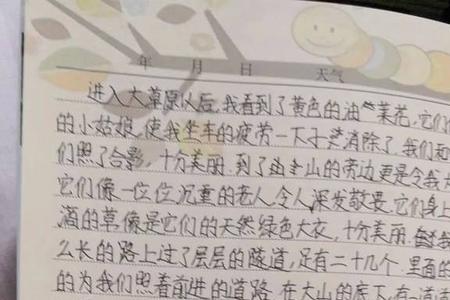 年 月 日 天气
进入大草原以后,我看到了黄色的油菜花,它们
的小姑娘,使我坐车的疲劳一下子消除了.我们和
们照了合影,十分美丽.到了山的旁边更是令我
它们像一位位沉重的老人,令人深发敬畏.它们身上
满的草,像是它们的天然绿色大衣,十分美丽.
么长的路上过了层层的隧道,足有二十几个.里面的
的为我们照着前进的道路.在大山的底下,有一